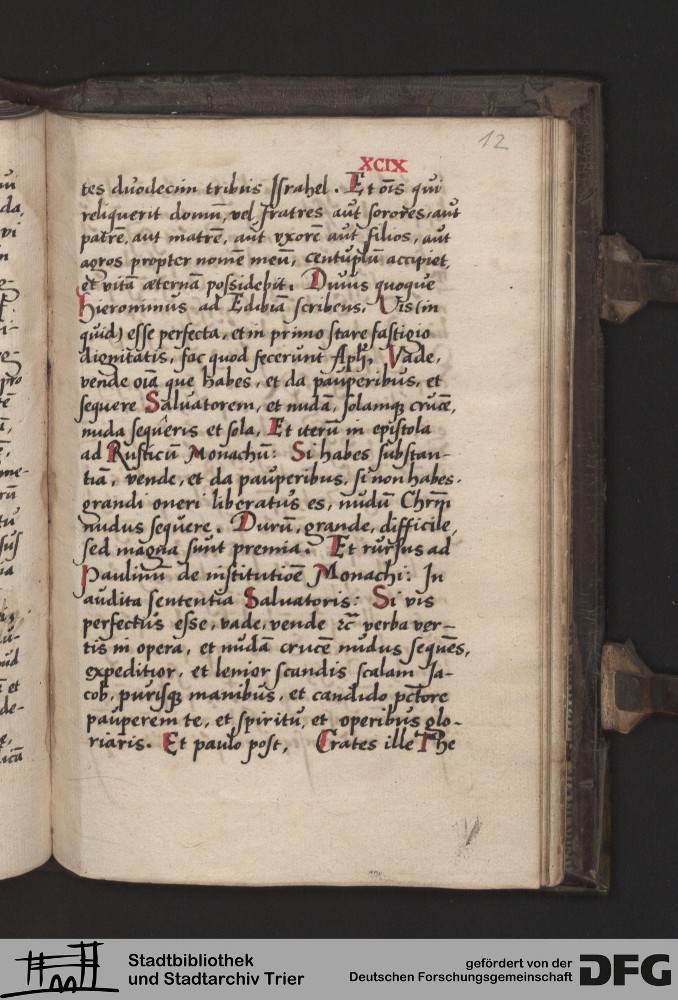 12
XCIX
tes duodecim tribus Israhel. Et oīs qui
reliquerit domū, vel fratres aut sorores, aut
patrē, aut matrē, aut vxorē aut filios, aut
agros propter nomē meū, centuplū accipiet,
et vitā æternā possidebit. Diuus quoque
hieronimus ad Edibiā scribens. Vis (in
quid) esse perfecta, et in primo stare fastigio
dignitatis, fac quod fecerunt Apl̄i, Vade,
vende oīa que habes, et da pauperibus, et
sequere Saluatorem, et nudā, solamq; crucē,
nuda sequeris et sola, Et iterū in epistola
ad Rusticū Monachū: Si habes substan-
tiā, vende, et da pauperibus, si non habes.
grandi oneri liberatus es, nudū Chrm̄
nudus sequere. Durū, grande, difficile,
sed magna sunt premia. Et rursus ad
Paulinū de institutiōe Monachi: In
audita sententia Saluatoris: Si vis
perfectus esse, vade, vende ⁊c̄ verba ver-
tis in opera, et nudā crucē nudus sequēs,
expeditior, et lenior scandis scalam Ja-
cob, purisq; manibus, et candido pc̄tore
pauperem te, et spiritu, et operibus glo-
riaris. Et paulo post, Crates ille The
Stadtbibliothek
und Stadtarchiv Trier
gefördert von der
Deutschen Forschungsgemeinschaft
DFG